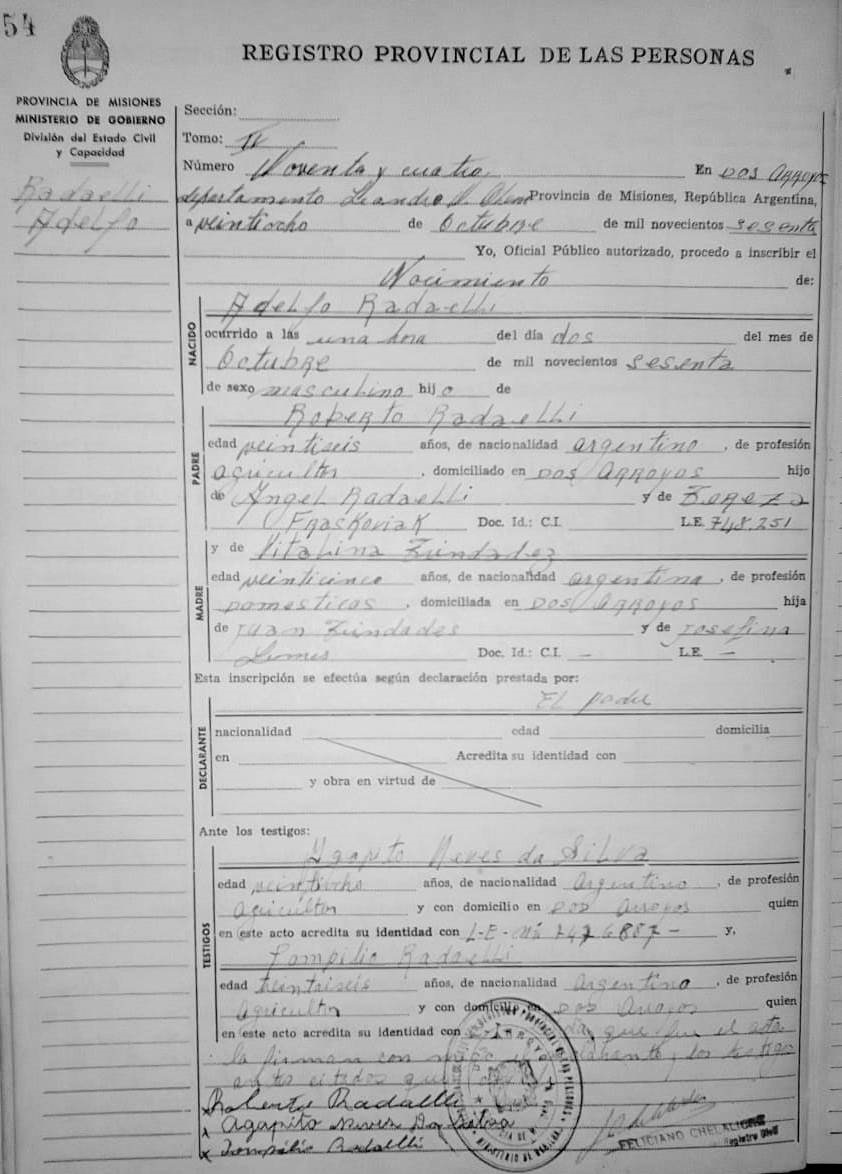 54
REGISTRO PROVINCIAL DE LAS PERSONAS
PROVINCIA DE MISIONES
MINISTERIO DE GOBIERNO
División del Estado Civil
y Capacidad
Radaelli
Adelfo
Sección:
Tomo:
Número Noventa y cuatro En DOS ARROYOS
departamento Leandro N. Alem Provincia de Misiones, República Argentina,
a veintiocho de Octubre de mil novecientos sesenta
Yo, Oficial Público autorizado, procedo a inscribir el
Nacimiento de:
NACIDO
Adelfo Radaelli
ocurrido a las una hora del día dos del mes de
Octubre de mil novecientos sesenta
de sexo masculino hijo de
PADRE
Roberto Radaelli
edad veintiseis años, de nacionalidad argentino, de profesión
agricultor, domiciliado en DOS ARROYOS hijo
de Angel Radaelli y de Tereza
Fraskoviak Doc. Id.: C.I. L.E. 748.251
MADRE
y de Vitalina Trindadez
edad veinticinco años, de nacionalidad argentina, de profesión
Domesticas, domiciliada en DOS ARROYOS hija
de Juan Trindades y de Josefina
Lemes Doc. Id.: C.I. — L.E. —
Esta inscripción se efectúa según declaración prestada por:
El padre
DECLARANTE
nacionalidad edad domicilia
en Acredita su identidad con
y obra en virtud de
Ante los testigos:
TESTIGOS
Agapito Neves da Silva
edad veintiocho años, de nacionalidad Argentino, de profesión
agricultor y con domicilio en Dos Arroyos quien
en este acto acredita su identidad con L-E- Nº 7476887 - y,
Pompilio Radaelli
edad treintaiseis años, de nacionalidad Argentino, de profesión
agricultor y con domicilio en Dos Arroyos quien
en este acto acredita su identidad con que el acta
la firman con migo el declarante, los testigos
antes citados
x Roberto Radaelli
x Agapito Neves Da Silva
x Pompilio Radaelli
FELICIANO CHELALICHE
Registro Civil